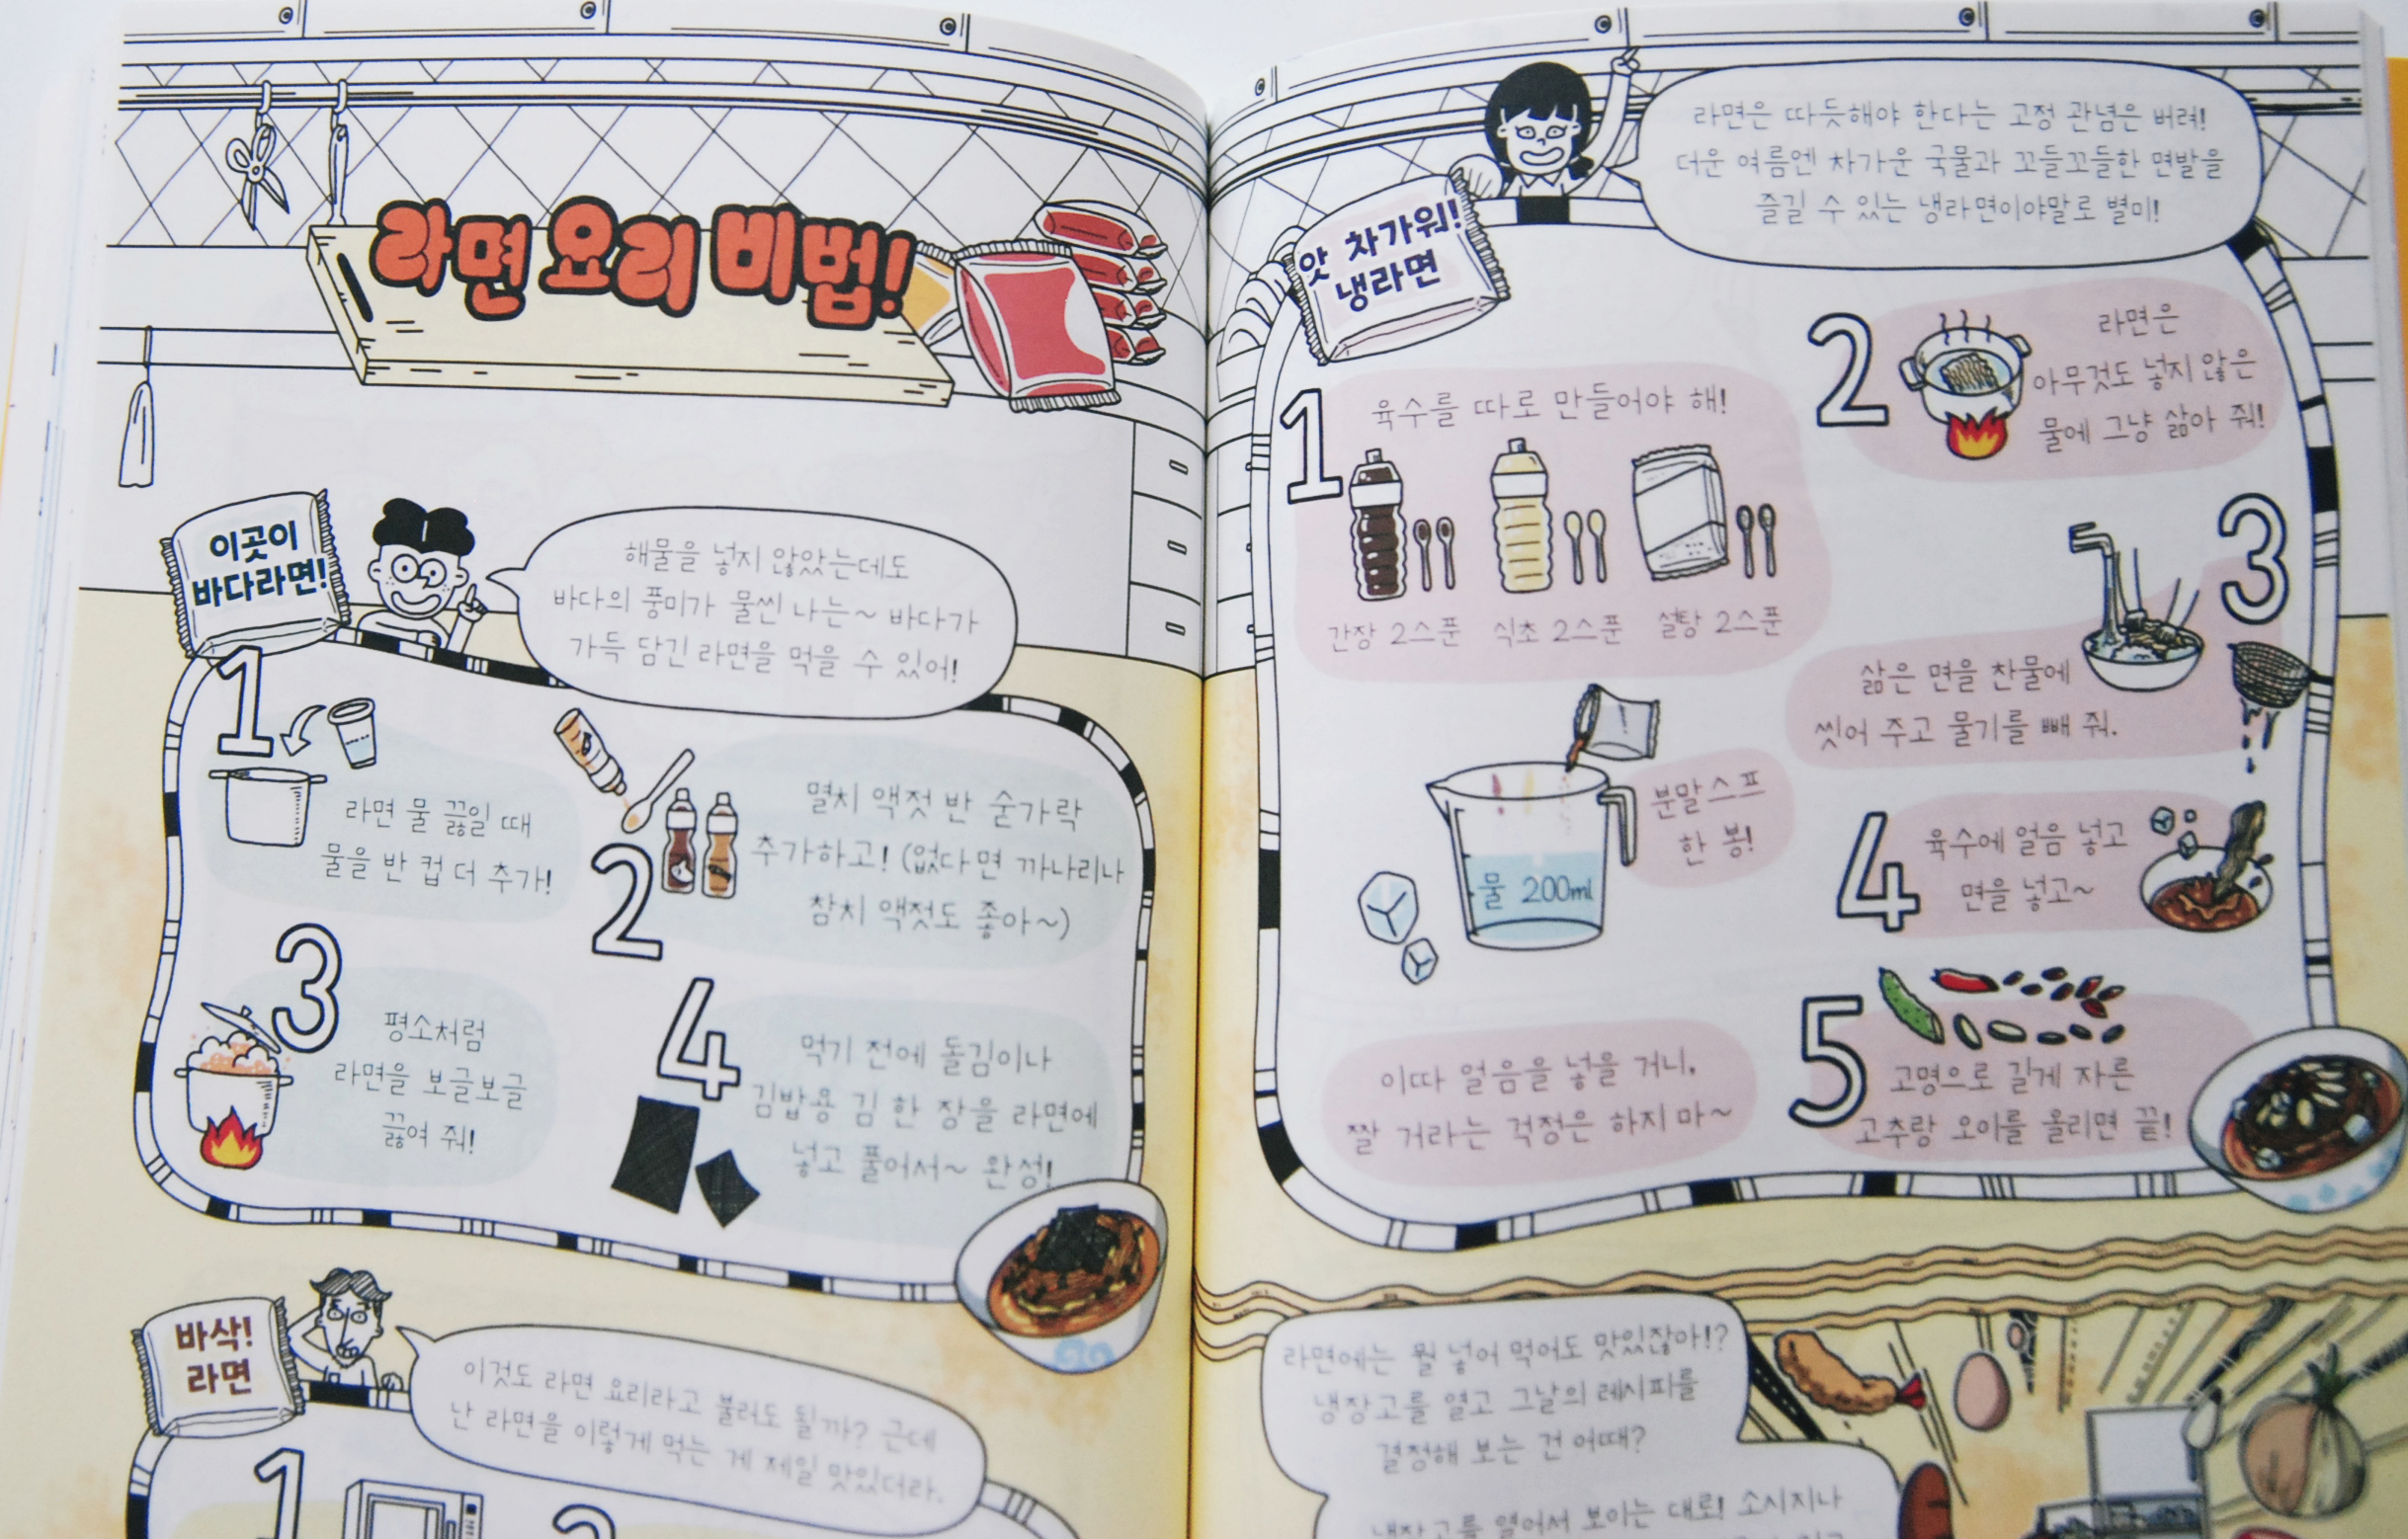 라면 요리 비법!
이곳이
바다라면!
해물을 넣지 않았는데도
바다의 풍미가 물씬 나는~ 바다가
가득 담긴 라면을 먹을 수 있어!
1
라면 물 끓일 때
물을 반 컵 더 추가!
2
멸치 액젓 반 숟가락
추가하고! (없다면 까나리나
참치 액젓도 좋아~)
3
평소처럼
라면을 보글보글
끓여 줘!
4
먹기 전에 돌김이나
김밥용 김 한 장을 라면에
넣고 풀어서~ 완성!
바삭!
라면
이것도 라면 요리라고 불러도 될까? 근데
난 라면을 이렇게 먹는 게 제일 맛있더라.
1
2
앗 차가워!
냉라면
라면은 따듯해야 한다는 고정 관념은 버려!
더운 여름엔 차가운 국물과 꼬들꼬들한 면발을
즐길 수 있는 냉라면이야말로 별미!
1
육수를 따로 만들어야 해!
간장 2스푼 식초 2스푼 설탕 2스푼
분말스프
한 봉!
물 200ml
이따 얼음을 넣을 거니,
짤 거라는 걱정은 하지 마~
2
라면은
아무것도 넣지 않은
물에 그냥 삶아 줘!
3
삶은 면을 찬물에
씻어 주고 물기를 빼 줘.
4
육수에 얼음 넣고
면을 넣고~
5
고명으로 길게 자른
고추랑 오이를 올리면 끝!
라면에는 뭘 넣어 먹어도 맛있잖아!?
냉장고를 열고 그날의 레시피를
결정해 보는 건 어때?
냉장고를 열어서 보이는 대로! 소시지나